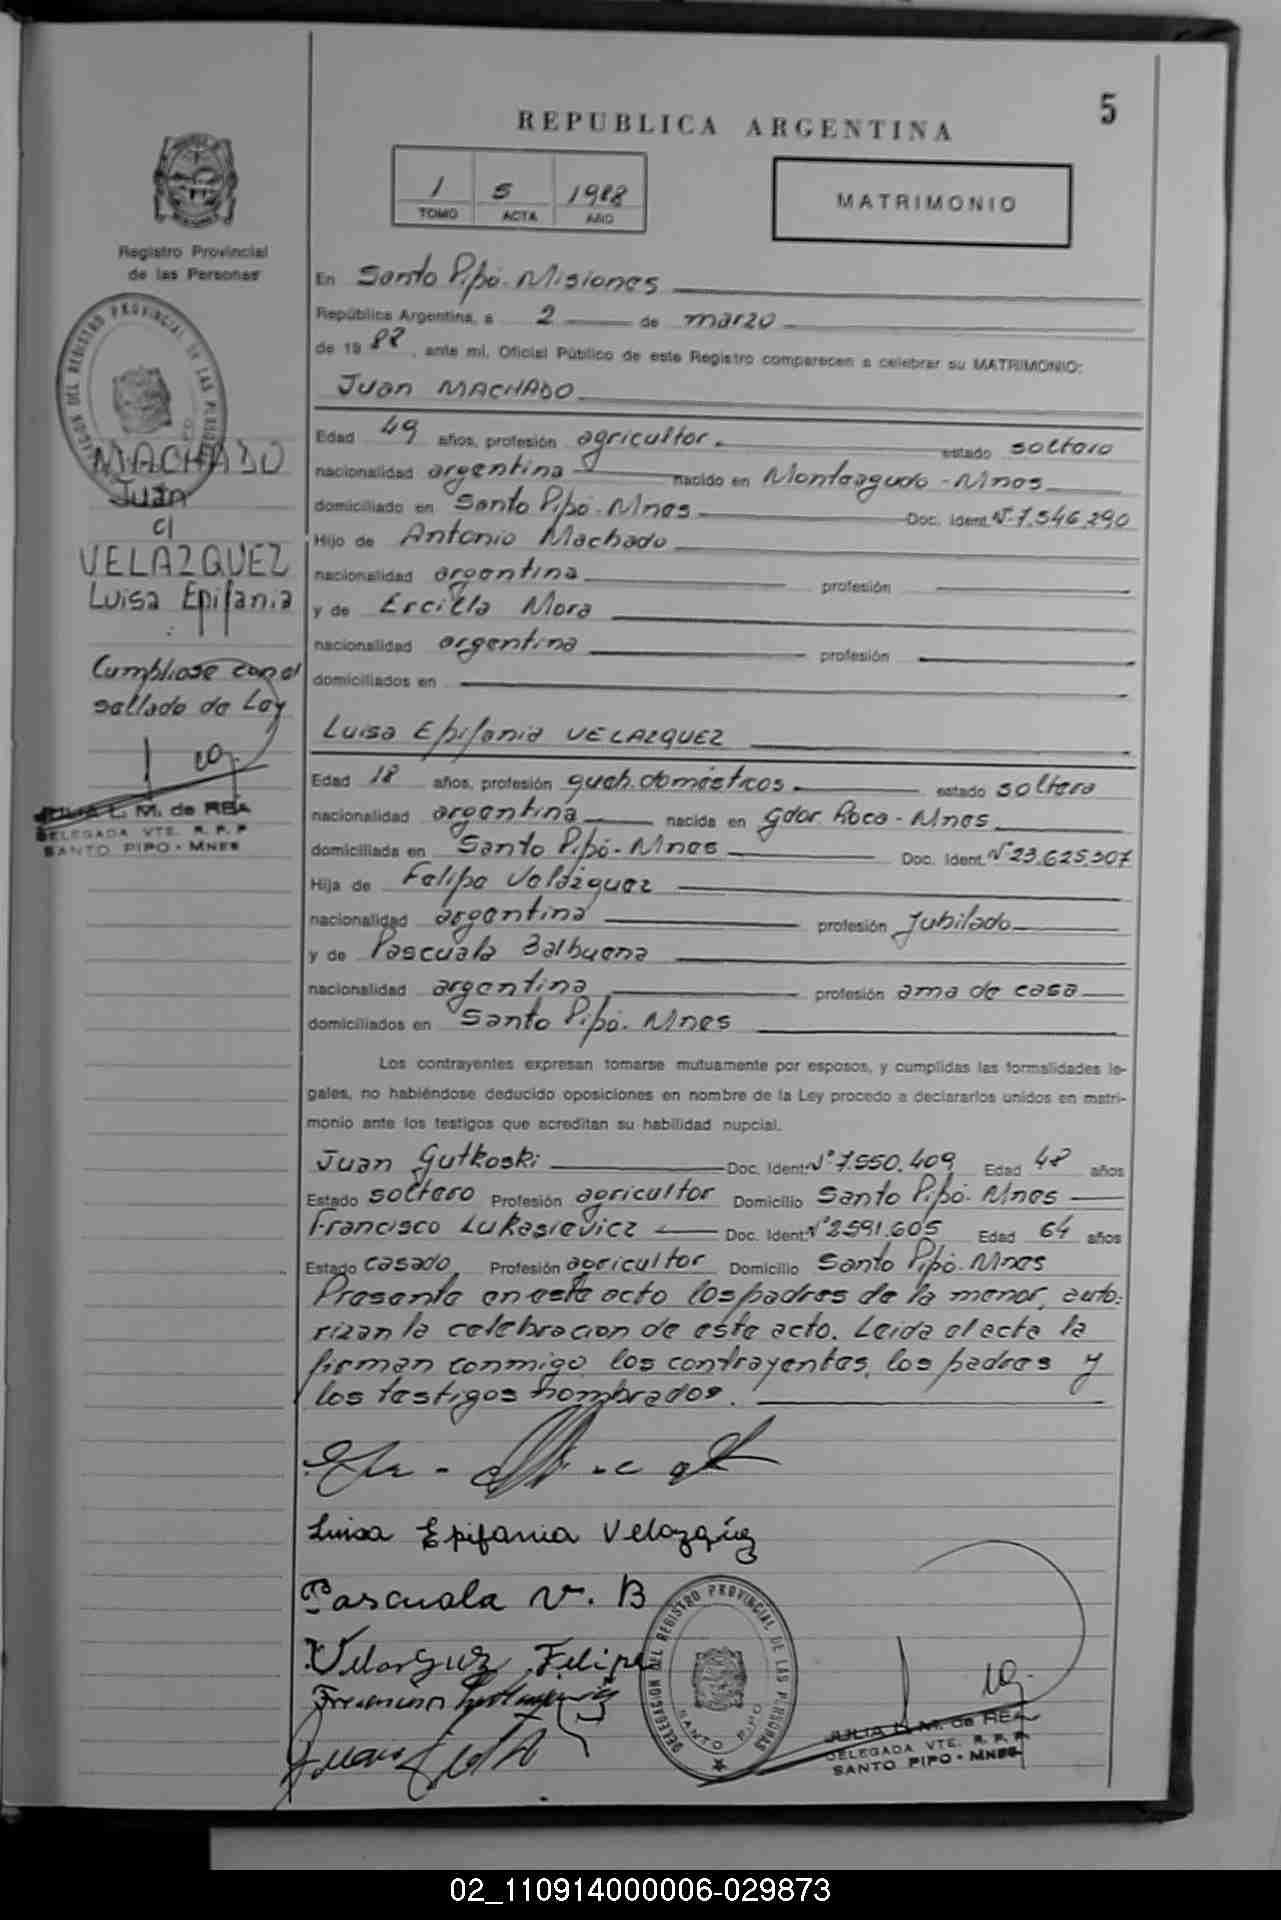 5
REPUBLICA ARGENTINA
1 5 1988
TOMO ACTA AÑO
MATRIMONIO
Registro Provincial
de las Personas
En Santo Pipó. Misiones
República Argentina, a 2 de marzo
de 19 88, ante mí, Oficial Público de este Registro comparecen a celebrar su MATRIMONIO:
Juan MACHADO
Edad 49 años, profesión agricultor. estado soltero
nacionalidad argentina nacido en Monteagudo - Mnes
domiciliado en Santo Pipó. Mnes Doc. Ident. Nº 7.546.290
Hijo de Antonio Machado
nacionalidad argentina profesión
y de Ercilla Mora
nacionalidad argentina profesión
domiciliados en
DELEGACION DEL REGISTRO PROVINCIAL DE LAS PERSONAS
MACHADO
Juan
c/
VELAZQUEZ
Luisa Epifania
Cumpliose con el
sellado de Ley
JULIA L. M. de REA
DELEGADA VTE. R. P. P
SANTO PIPO - MNES
Luisa Epifania VELAZQUEZ
Edad 18 años, profesión queh. domésticos estado soltera
nacionalidad argentina nacida en Gdor. Roca - Mnes
domiciliada en Santo Pipó - Mnes Doc. Ident. Nº 23.625.307
Hija de Felipe Velázquez
nacionalidad argentina profesión Jubilado
y de Pascuala Balbuena
nacionalidad argentina profesión ama de casa
domiciliados en Santo Pipó. Mnes
Los contrayentes expresan tomarse mutuamente por esposos, y cumplidas las formalidades le-
gales, no habiéndose deducido oposiciones en nombre de la Ley procedo a declararlos unidos en matri-
monio ante los testigos que acreditan su habilidad nupcial.
Juan Gutkoski Doc. Ident. Nº 7.550.409 Edad 48 años
Estado soltero Profesión agricultor Domicilio Santo Pipó. Mnes
Francisco Lukasievicz Doc. Ident. Nº 2591.605 Edad 64 años
Estado casado Profesión agricultor Domicilio Santo Pipó. Mnes
Presente en este acto los padres de la menor, auto-
rizan la celebracion de este acto. Leida el acta la
firman conmigo los contrayentes, los padres y
los testigos nombrados.
Luisa Epifania Velazquez
Pascuala V. B
Velasquez Felipe
DELEGACION DEL REGISTRO PROVINCIAL DE LAS PERSONAS
SANTO PIPO
JULIA L. M. de REA
DELEGADA VTE. R. P. P.
SANTO PIPO - MNES
02_110914000006-029873